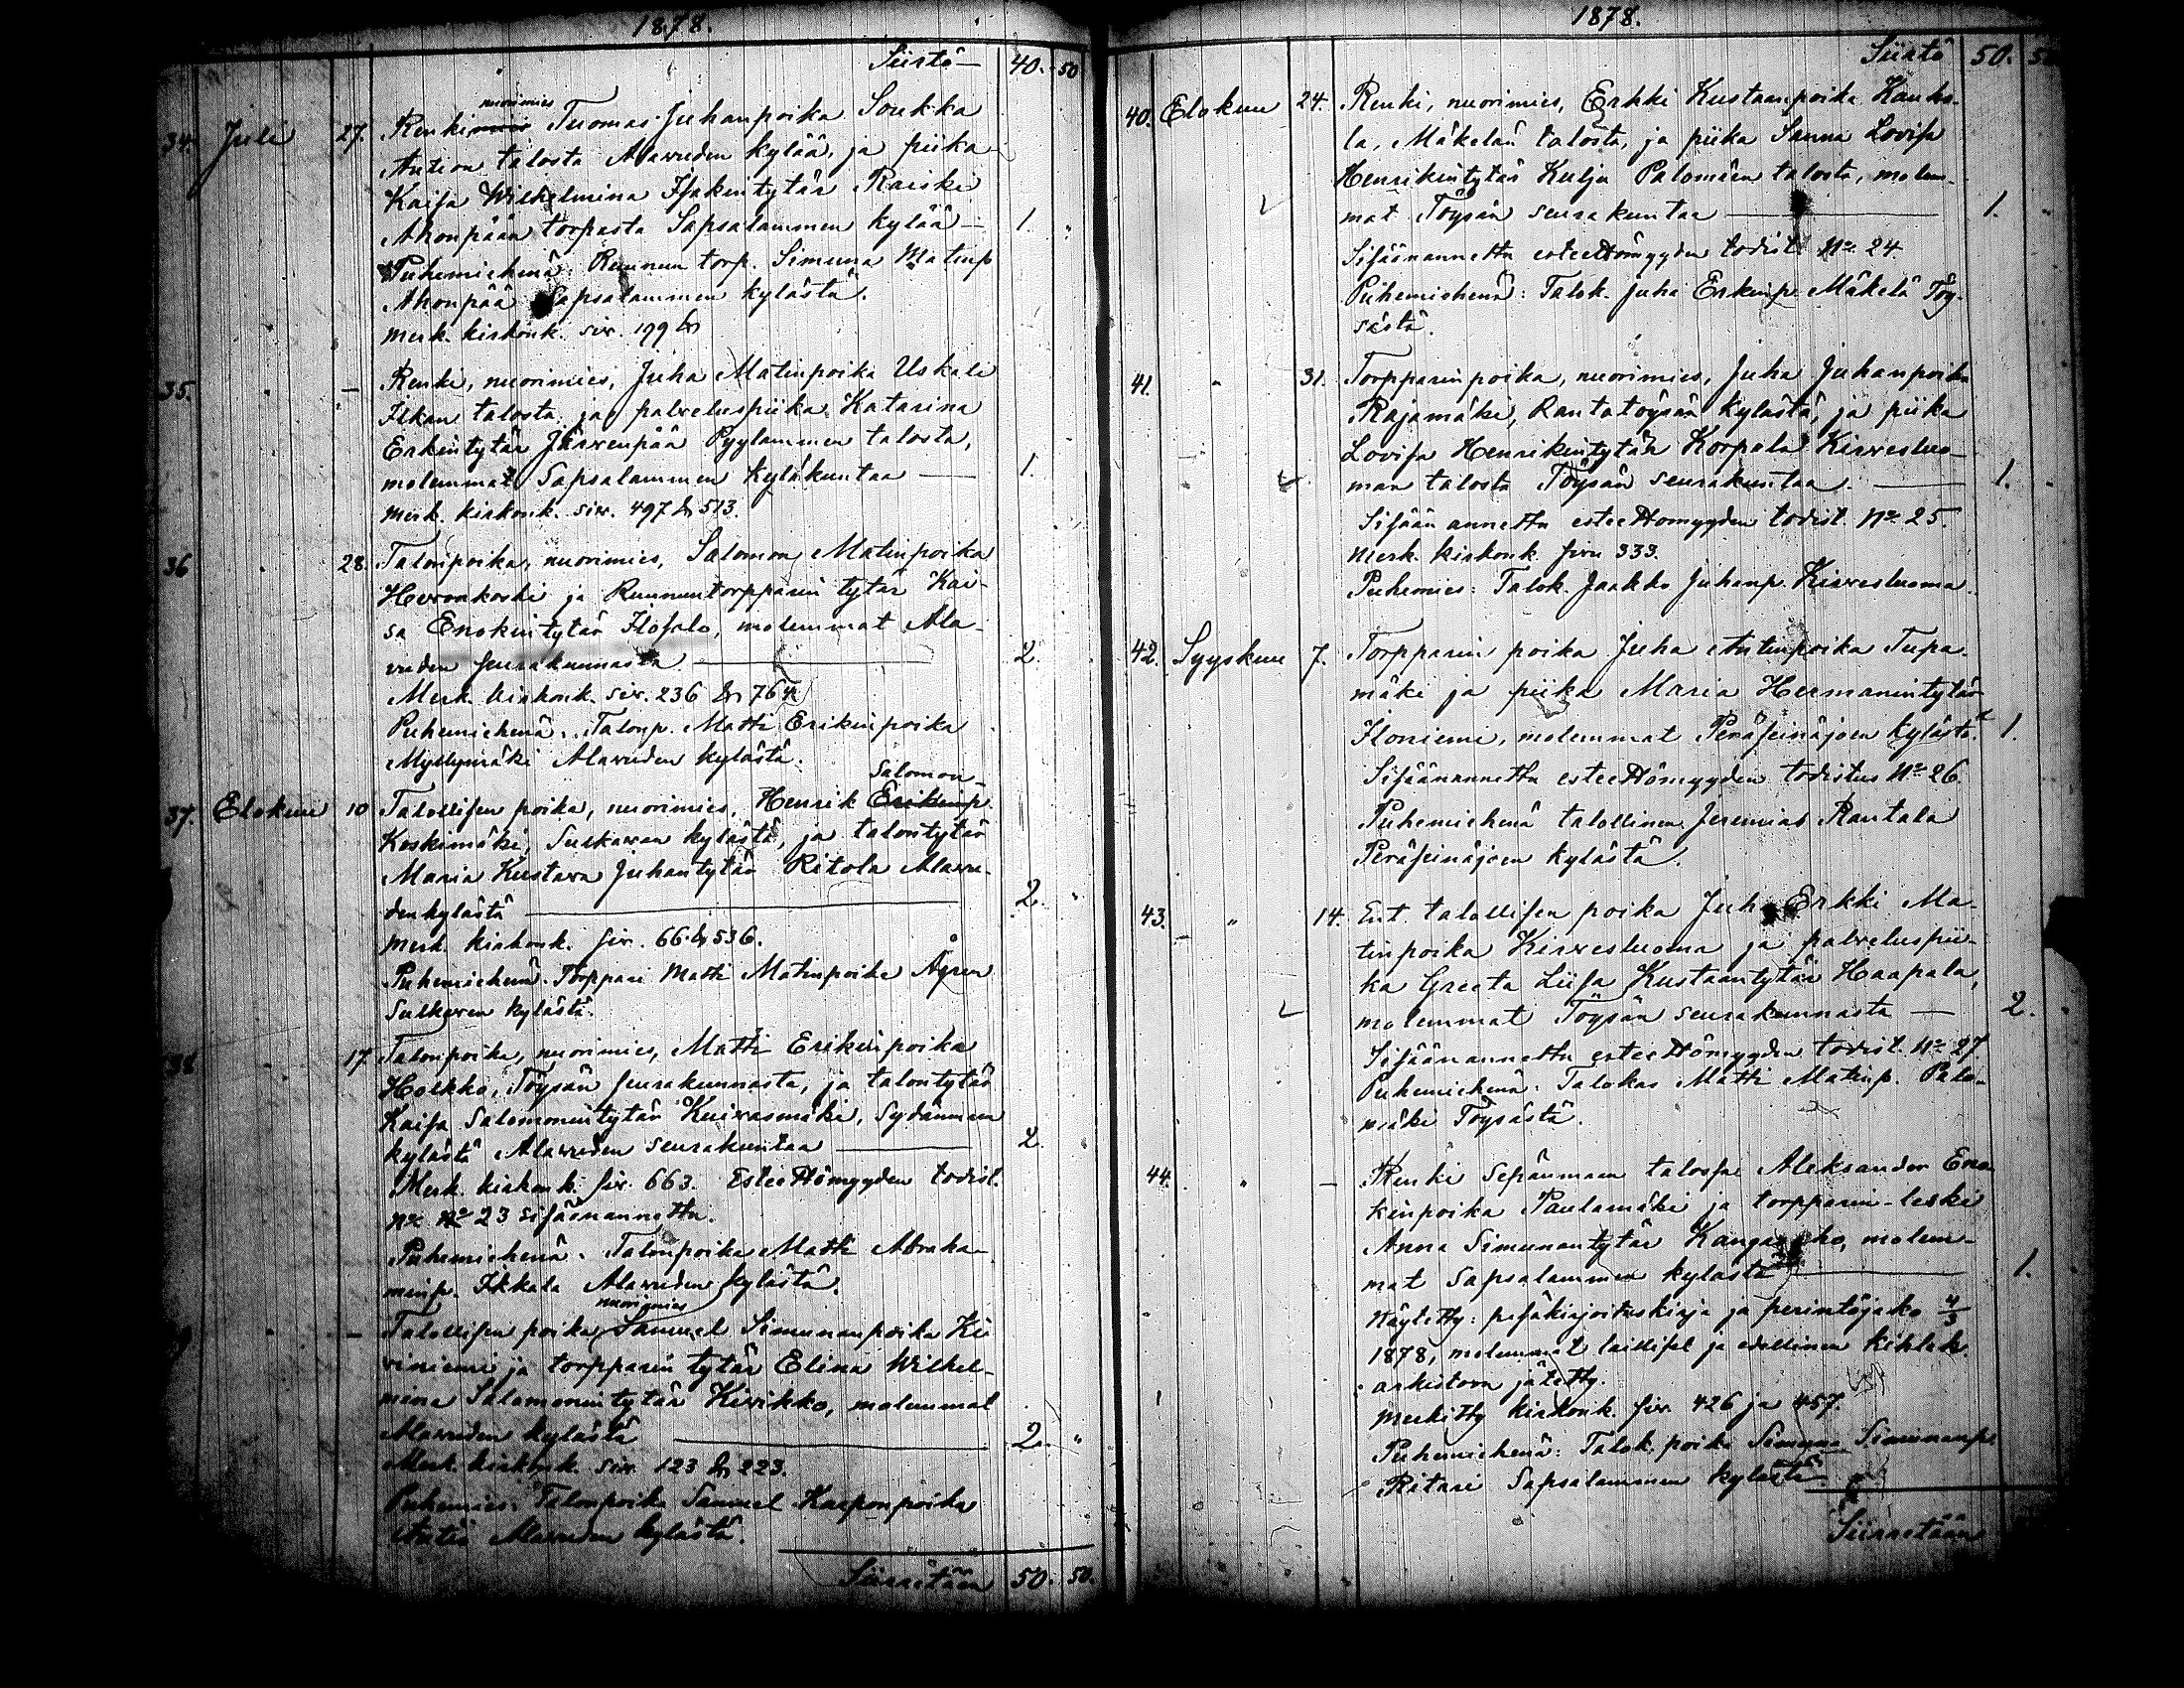 1878.
Siirtö — 40. 50
34. Juli 27. Renki nuorimies Tuomas Juhanpoika Soukka
Antion talosta Alavuden kylää, ja piika
Kaisa Wilhelmina Isakintytär Raiski
Ahonpään torpasta Sapsalammen kylää — 1. "
Puhemiehenä: Ruunun torp. Simuna Matinp
Ahonpää Sapsalammen kylästä.
Merk. kirkonk. siv. 199
35. " — Renki, nuorimies, Juha Matinpoika Uskali
Ikkan talosta ja palveluspiika Katarina
Erkintytär Järvenpää Pyylammen talosta,
molemmat Sapsalammen kyläkuntaa — 1.
Merk. kirkonk. siv. 497 & 513.
36 " 28. Talonpoika, nuorimies, Salomon Matinpoika
Hervankoski ja Ruununtorpparin tytär Kai-
sa Enokintytär Ilosalo, molemmat Ala-
vuden seurakunnasta — 2.
Merk. kirkonk. siv. 236 & 764
Puhemiehenä: Talonp. Matti Erikinpoika
Myllymäki Alavuden kylästä.
Salomon-
37. Elokuu 10 Talollisen poika, nuorimies, Henrik Erikinp.
Koskimäki, Sulkavan kylästä, ja talontytär
Maria Kustava Juhantytär Ritola Alavu-
den kylästä — 2. "
Merk. kirkonk. siv. 66 & 536.
Puhemiehenä: Torppari Matti Matinpoika Ågren
Sulkavan kylästä.
38 17. Talonpoika, nuorimies, Matti Erikinpoika
Holkko, Töysän seurakunnasta, ja talontytär
Kaisa Salomonintytär Kuivasmäki, Sydänmaan
kylästä Alavuden seurakuntaa — 2.
Merk. kirkonk. siv. 663. Esteettömyyden todist.
No 23 sisäänannettu.
Puhemiehenä: Talonpoika Matti Abraha-
minp. Ikkala Alavuden kylästä.
nuorimies
39 " — Talollisen poika, Samuel Simunanpoika Ki
viniemi ja torpparin tytär Elina Wilhel-
mina Salomonintytär Kivikko, molemmat
Alavuden kylästä — 2. "
Merk. kirkonk. siv. 123 & 223.
Puhemies: Talonpoika Samuel Kaaponpoika
Antio Alavuden kylästä.
Siirretään 50. 50.
1878.
Siirtö 50.
40. Elokuu 24. Renki, nuorimies, Erkki Kustaanpoika Kauha-
la, Mäkelän talosta, ja piika Sanna Lovisa
Henrikintytär Kulju Palomäen talosta, molem-
mat Töysän seurakuntaa — 1.
Sisäänannettu esteettömyyden todist. No 24.
Puhemiehenä: Talok. Juha Erkinp. Mäkelä Töy-
sästä.
41. " 31. Torpparinpoika, nuorimies, Juha Juhanpoika
Rajamäki, Rantatöysän kylästä, ja piika
Lovisa Henrikintytär Korpela Kirvesluo-
man talosta Töysän seurakuntaa. — 1.
Sisään annettu esteettömyyden todist. No 25.
Merk. kirkonk. sivu 333.
Puhemies: Talok. Jaakko Juhanp. Kirvesluoma.
42. Syyskuu 7. Torpparin poika Juha Antinpoika Tupa-
mäki ja piika Maria Hermanintytär
Iloniemi, molemmat Peräseinäjoen kylästä 1.
Sisäänannettu esteettömyyden todistus No 26.
Puhemiehenä talollinen Jeremias Rantala
Peräseinäjoen kylästä.
43. " 14. Ent. talollisen poika Juha Erkki Ma-
tinpoika Kirvesluoma ja palveluspii-
ka Greeta Liisa Kustaantytär Haapala,
molemmat Töysän seurakunnasta — 2.
Sisäänannettu esteettömyyden todist. No 27
Puhemiehenä: Talokas Matti Matinp. Palo-
mäki Töysästä.
44. " — Renki Sepänmaan talossa Aleksander Eno-
kinpoika Paulamäki ja torpparin-leski
Anna Simunantytär Kangas aho, molem-
mat Sapsalammen kylästä — 1.
Näytetty: pesäkirjoituskirja ja perintöjako 4/3
1878, molemmat lailliset ja edellinen kihlak.
arkistoon jätetty.
Merkitty kirkonk. siv. 426 ja 457.
Puhemiehenä: Talok. poika Simuna Simunanp.
Ritari Sapsalammen kylästä.
Siirretään